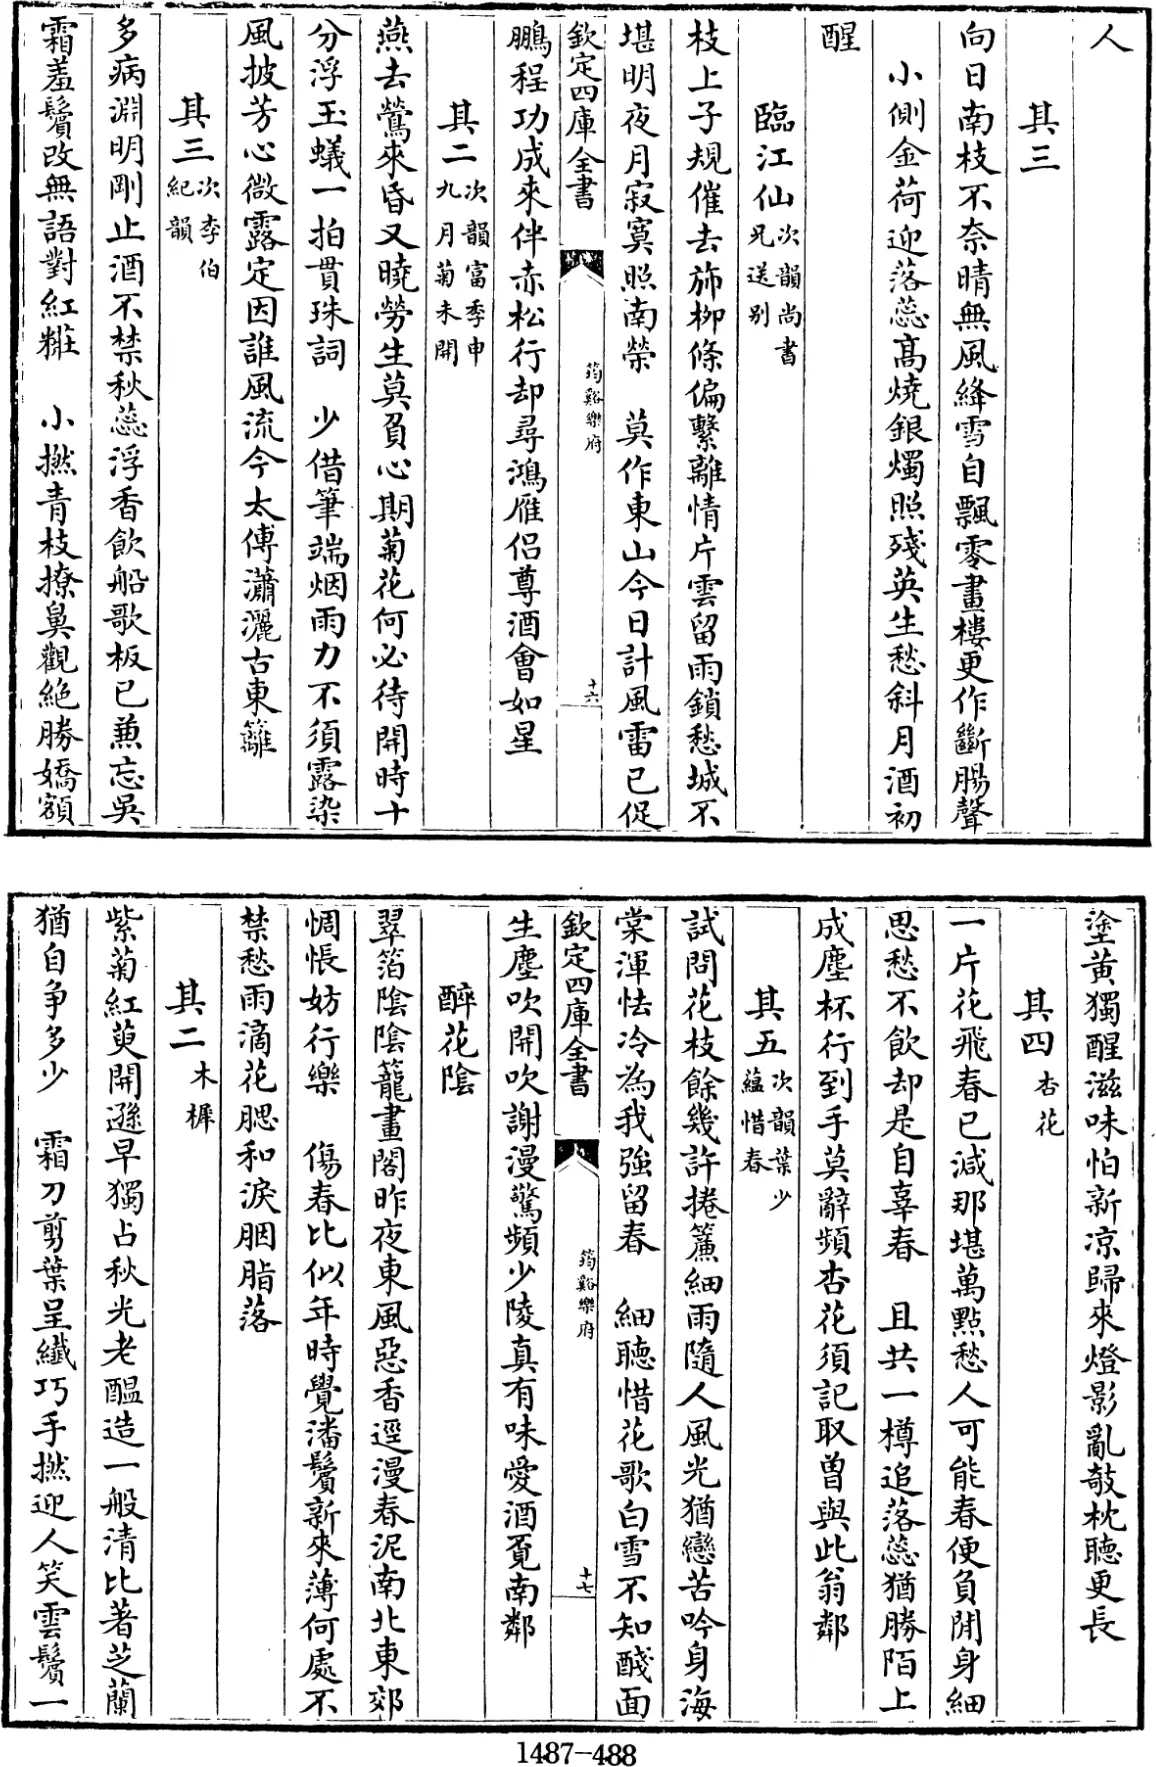 人
其三
向日南枝不奈晴無風絳雪自飄零畫樓更作斷腸聲
小側金荷迎落蕊髙燒銀燭照殘英生愁斜月酒初
醒
臨江仙次韻尚書兄送别
枝上子規催去斾栁條偏繫離情片雲留雨鎖愁城不
堪明夜月寂寞照南榮　莫作東山今日計風雷已促
欽定四庫全書
筠谿樂府
十六
鵬程功成來伴赤松行却尋鴻雁侣尊酒會如星
其二次韻富季申九月菊未開
燕去鶯來昏又曉勞生莫負心期菊花何必待開時十
分浮玉蟻一拍貫珠詞　少借筆端烟雨力不須露染
風披芳心微露定因誰風流今太傅瀟灑古東籬
其三次李伯紀韻
多病淵明剛止酒不禁秋蕊浮香飲船歌板已兼忘吳
霜羞鬢改無語對紅糚　小撚青枝撩鼻觀絶勝嬌額
塗黄獨醒滋味怕新凉歸來燈影亂敧枕聽更長
其四杏花
一片花飛春已減那堪萬點愁人可能春便負閒身細
思愁不飲却是自辜春　且共一樽追落蕊猶勝陌上
成塵杯行到手莫辭頻杏花須記取曽與此翁鄰
其五次韻葉少蘊惜春
試問花枝餘幾許捲簾細雨隨人風光猶戀苦吟身海
棠渾怯冷為我強留春　細聽惜花歌白雪不知醆面
欽定四庫全書
筠谿樂府
十七
生塵吹開吹謝漫驚頻少陵真有味愛酒覓南鄰
醉花陰
翠箔陰陰籠畫閣昨夜東風惡香逕漫春泥南北東郊
惆悵妨行樂　傷春比似年時覺潘鬢新來薄何處不
禁愁雨滴花腮和淚胭脂落
其二木樨
紫菊紅萸開遜早獨占秋光老醖造一般清比著芝蘭
猶自争多少　霜刀剪葉呈纎巧手撚迎人笑雲鬢一
1487-488